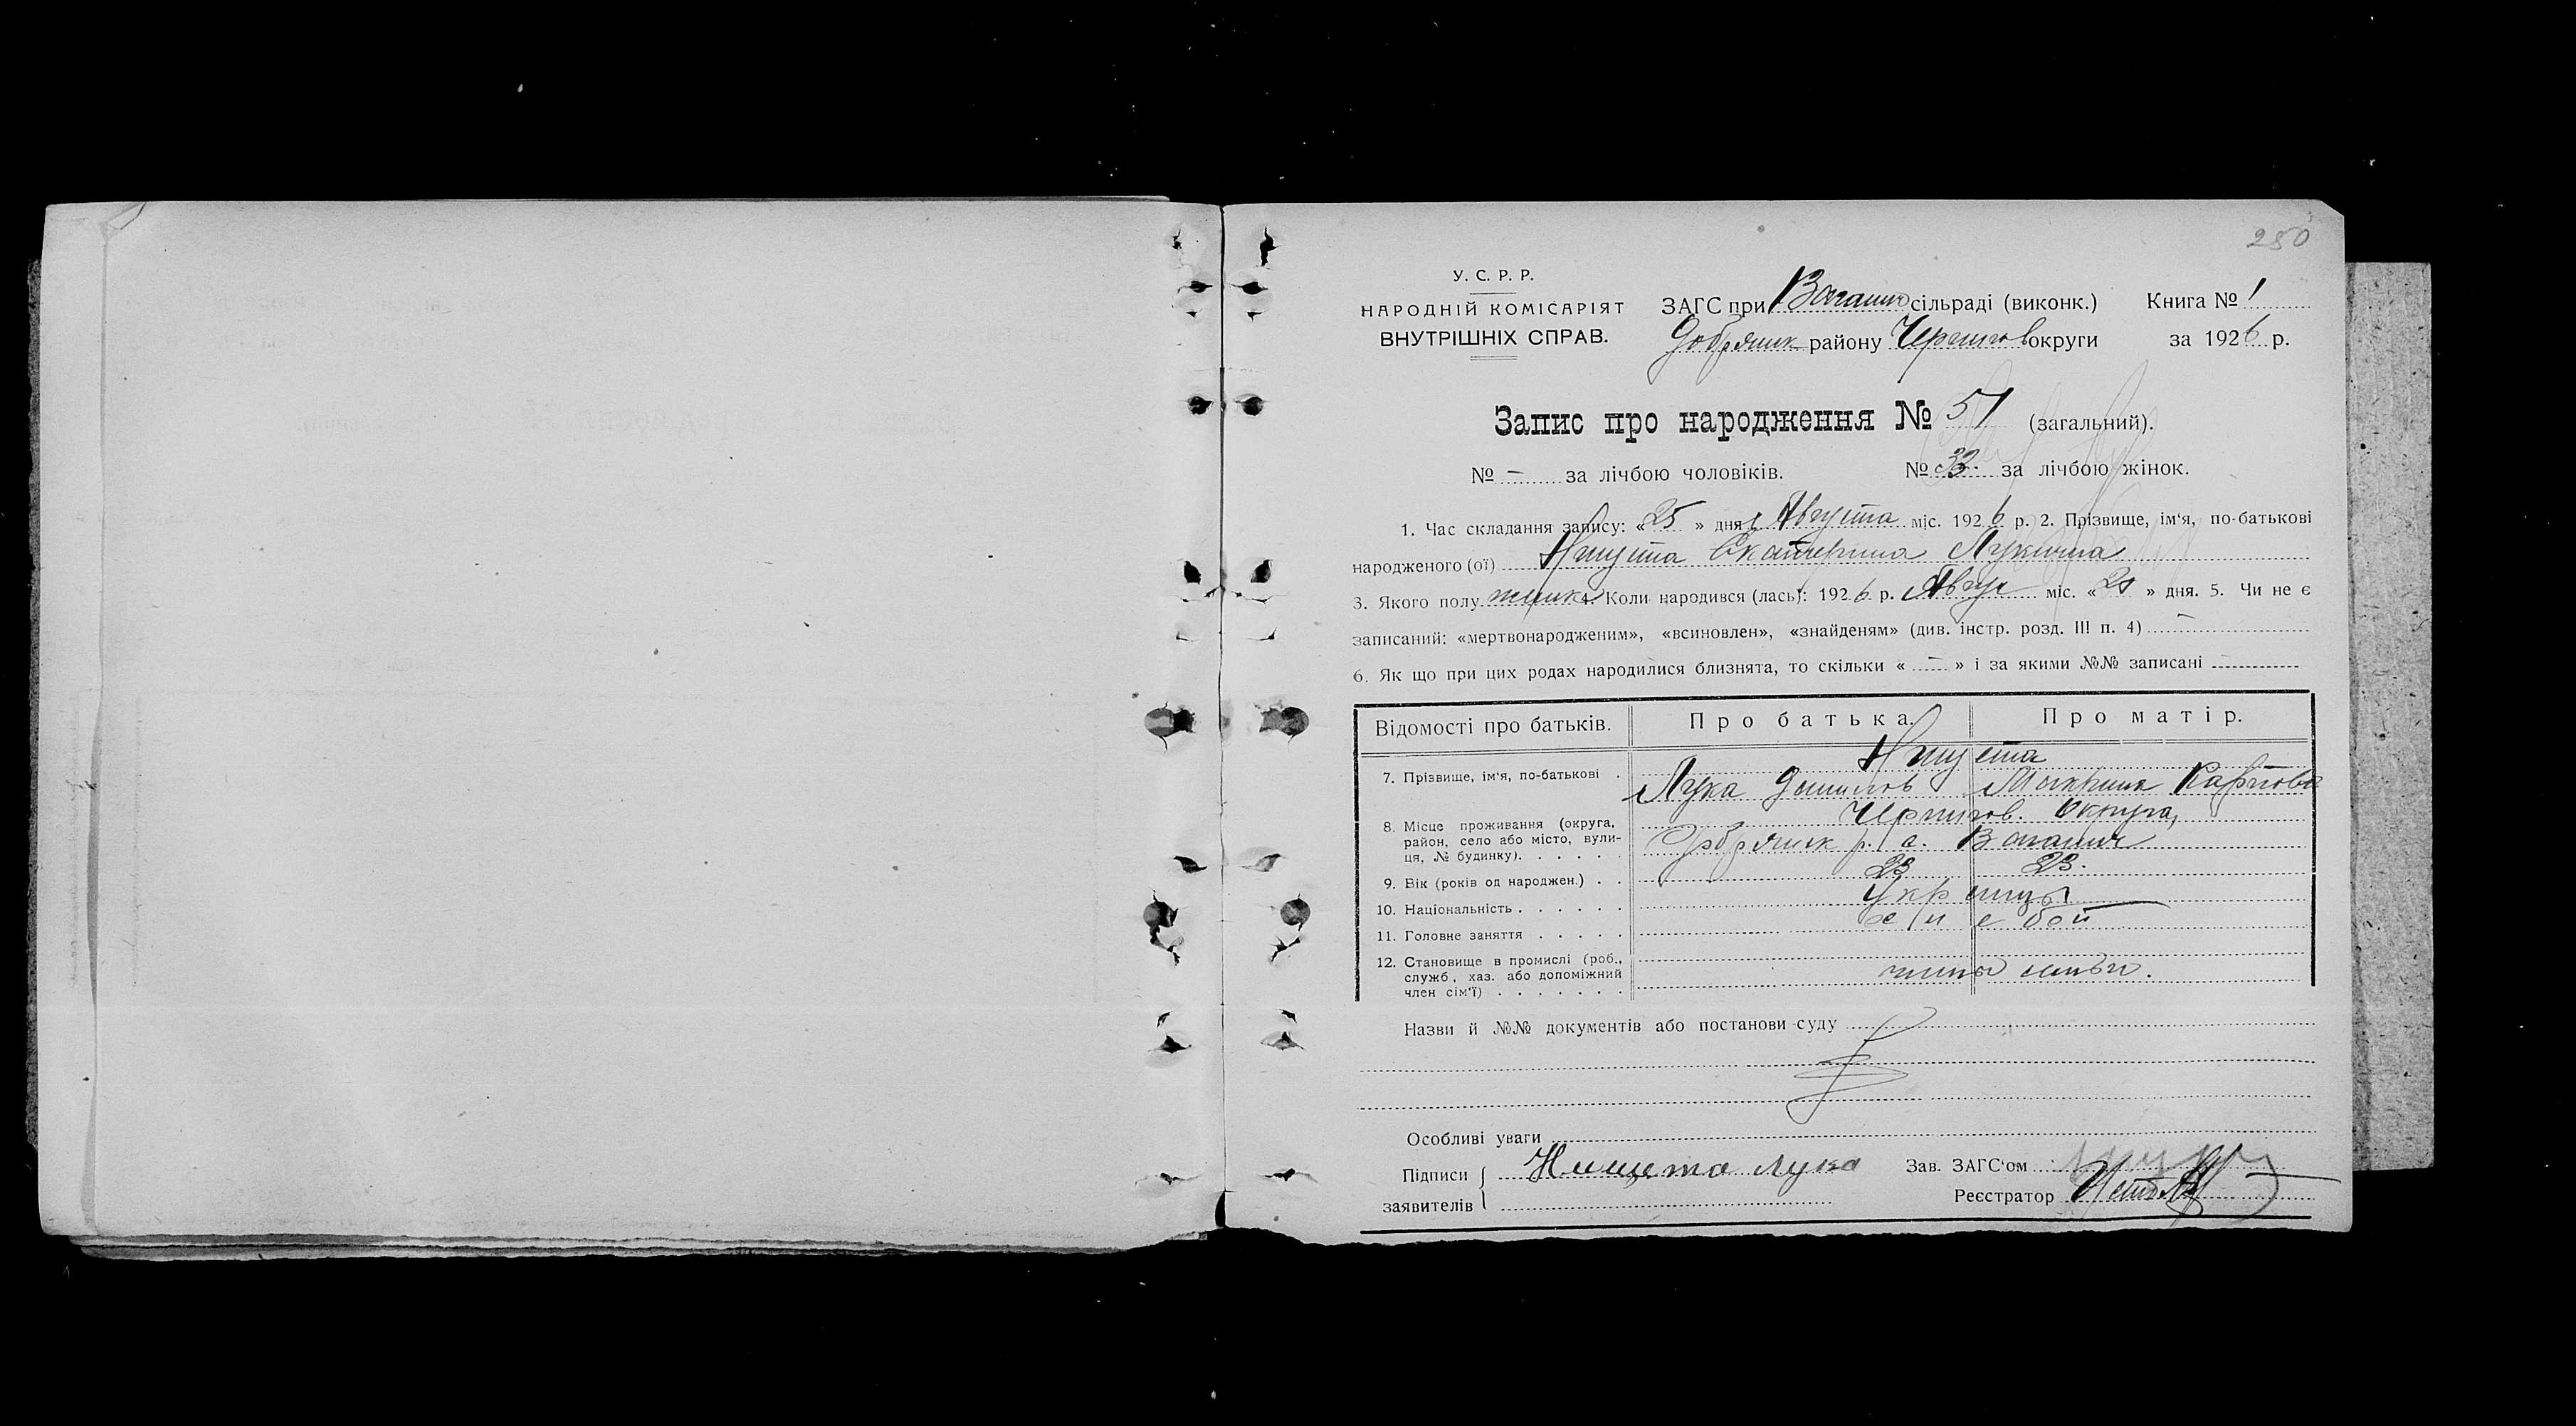 250
У. С. Р. Р.
НАРОДНІЙ КОМІСАРІЯТ
ВНУТРІШНІХ СПРАВ.
ЗАГС при сільраді (виконк.) Книга № 1
району Чернигов округи за 1926 р.
Запис про народження № 51 (загальний).
№ – за лічбою чоловіків. № 33. за лічбою жінок.
1. Час складання запису: « 25 » дня Августа міс. 1926 р. 2. Прізвище, ім'я, по-батькові
народженого (ої) Нищета Екатерина Лукична
3. Якого полу женск 4. Коли народився (лась): 1926 р. Авгус міс. « » дня. 5. Чи не є
записаний: «мертвонародженим», «всиновлен», «знайденям» (див. інстр. розд. III п. 4) –
6. Як що при цих родах народилися близнята, то скільки « – » і за якими №№ записані
Відомості про батьків. Про батька. Про матір.
7. Прізвище, ім'я, по-батькові . Нищета
Лука Данилов Мокрина Карпова
8. Місце проживання (округа, район, село або місто, вулиця, № будинку). . . . . . Чернигов. Округа,
р. с.
9. Вік (років од народжен.) . . 23 23.
10. Національність . . . . . . Укр
11. Головне заняття . . . . .
12. Становище в промислі (роб., служб, хаз. або допоміжний член сім'ї) . . . . . . .
Назви й №№ документів або постанови суду
Особливі уваги
Підписи заявителів { Нищета Лука
Зав. ЗАГС'ом
Реєстратор